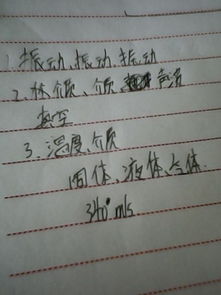 1. 振动、振动、振动
2. 介质、介质、声源
真空
3. 温度、介质
固体、液体、气体
340 m/s